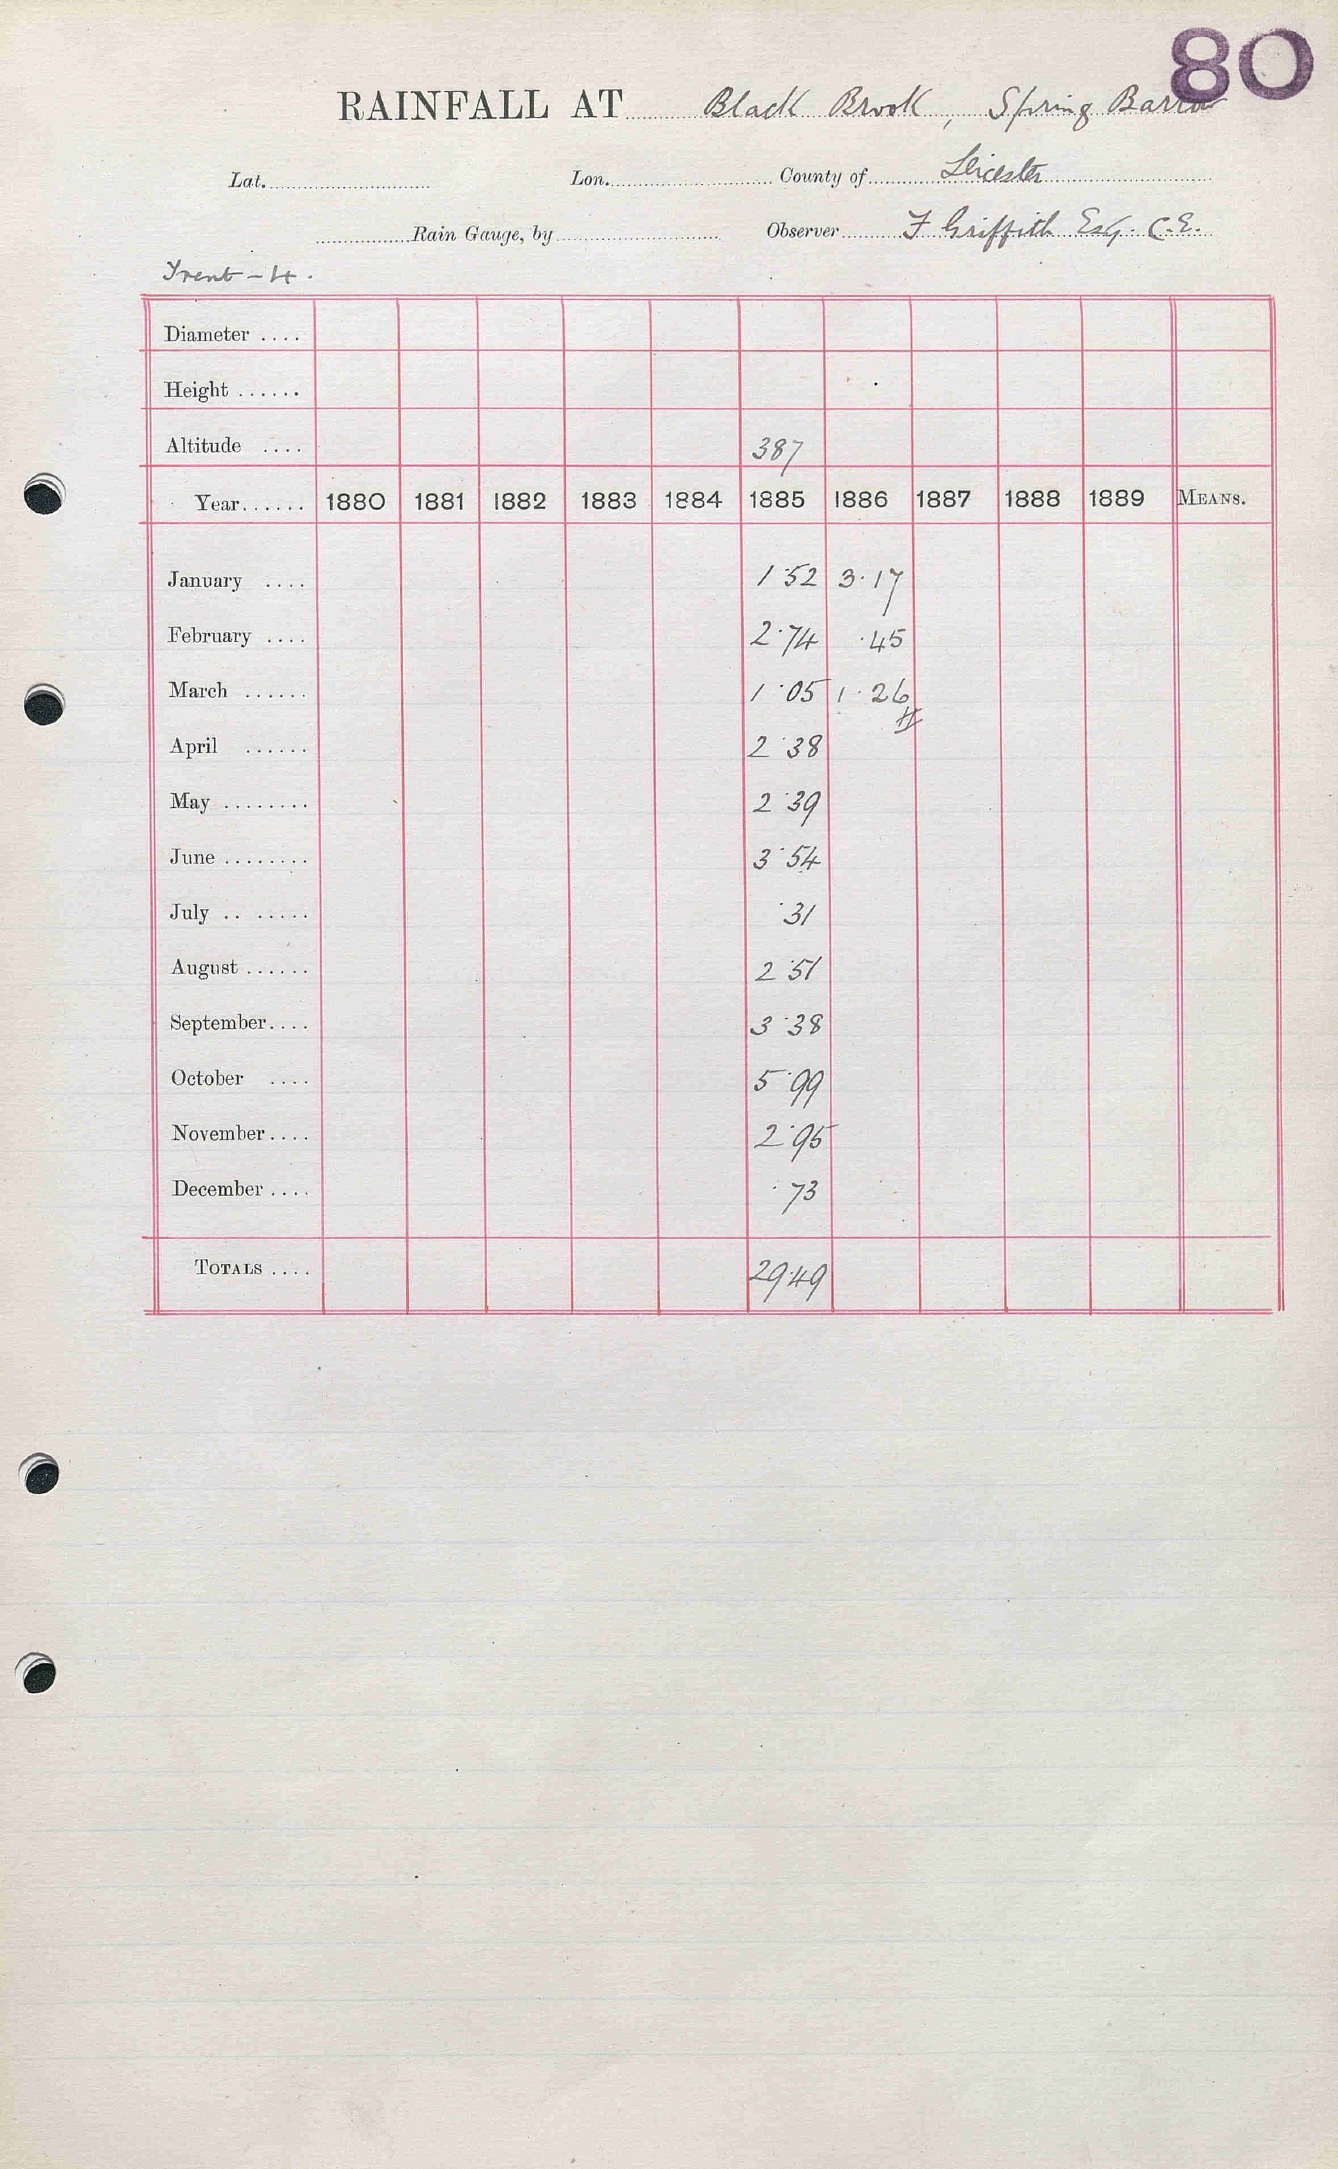 80
RAINFALL AT Black Brook, Spring Barrow
Lat. Lon. County of Leicester
Rain Gauge, by Observer F Griffith Esq. C.E.
Trent - 4.
Diameter ....
Height ......
Altitude .... 387
Year...... 1880 1881 1882 1883 1884 1885 1886 1887 1888 1889 MEANS.
January .... 1.52 3.17
February .... 2.74 .45
March ...... 1.05 1.26
April ...... 2.38
May ........ 2.39
June ........ 3.54
July .. ..... .31
August ...... 2.51
September.... 3.38
October .... 5.99
November.... 2.95
December .... .73
TOTALS .... 29.49